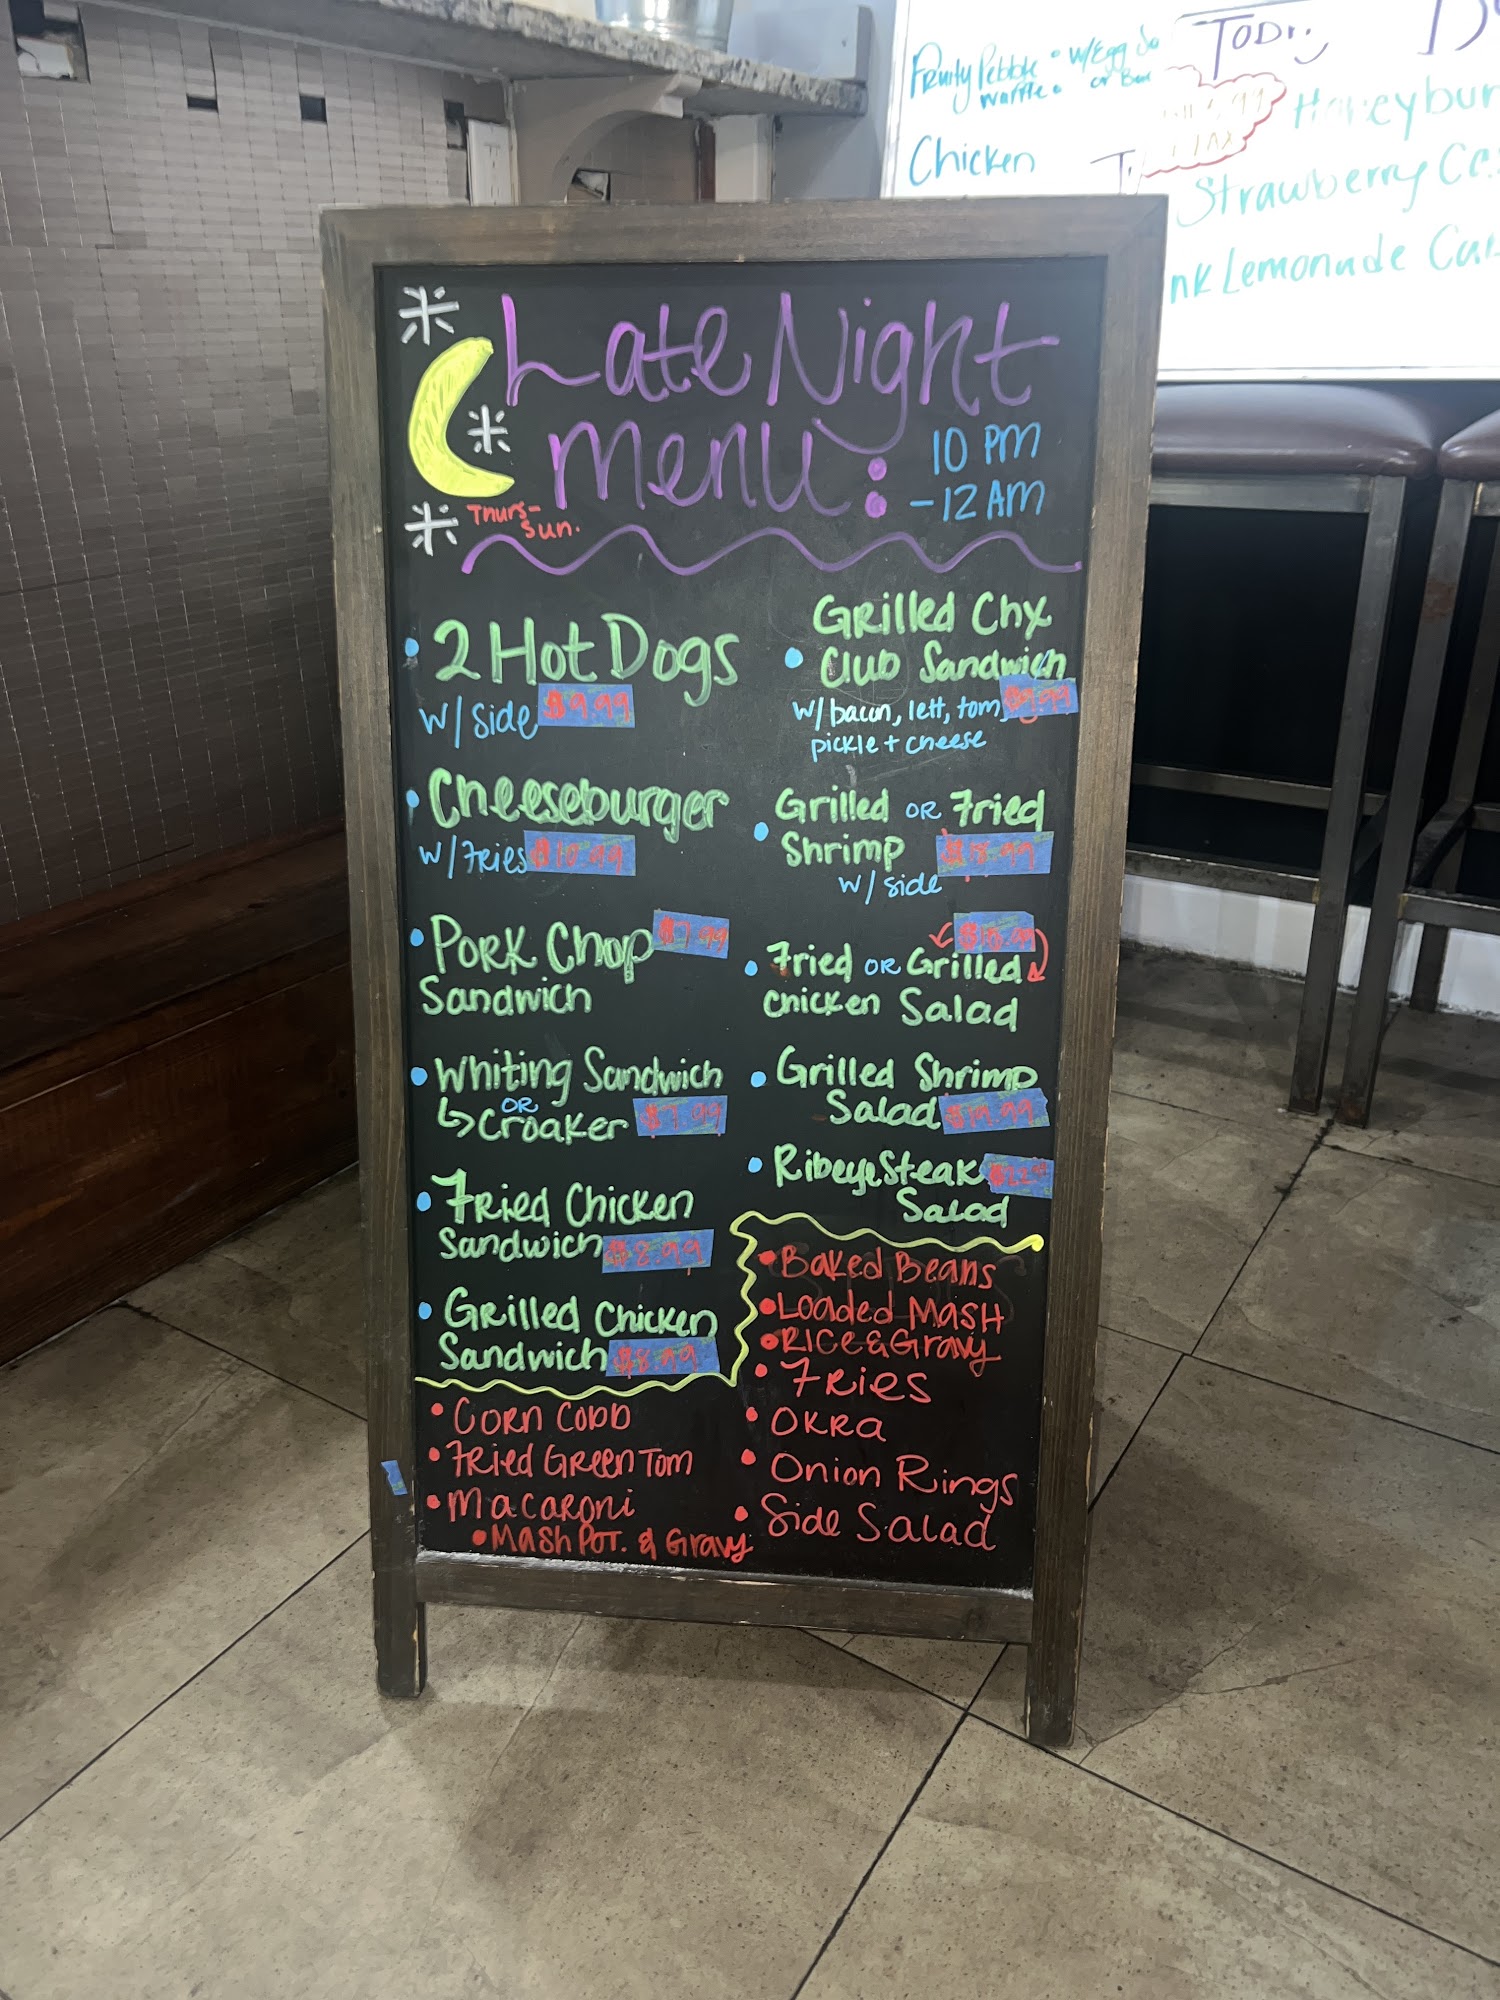 Late Night
Menu:
10 PM
-12 AM
Thurs-
Sun.
2 Hot Dogs
w/ side $9.99
Cheeseburger
w/ Fries $10.99
Pork Chop $7.99
Sandwich
Whiting Sandwich
OR
Croaker $7.99
Fried Chicken
Sandwich $8.99
Grilled Chicken
Sandwich $8.99
Grilled Chx
Club Sandwich
w/ bacon, lett, tom, $9.99
pickle + cheese
Grilled OR Fried
Shrimp
w/ side
Fried OR Grilled
Chicken Salad
Grilled Shrimp
Salad $19.99
Ribeye Steak
Salad
Corn Cobb
Fried Green Tom
Macaroni
Mash Pot. & Gravy
Baked Beans
Loaded Mash
Rice & Gravy
Fries
Okra
Onion Rings
Side Salad
Fruity Pebble w/ Egg
Waffle or
Chicken
Honeybun
Strawberry
Lemonade